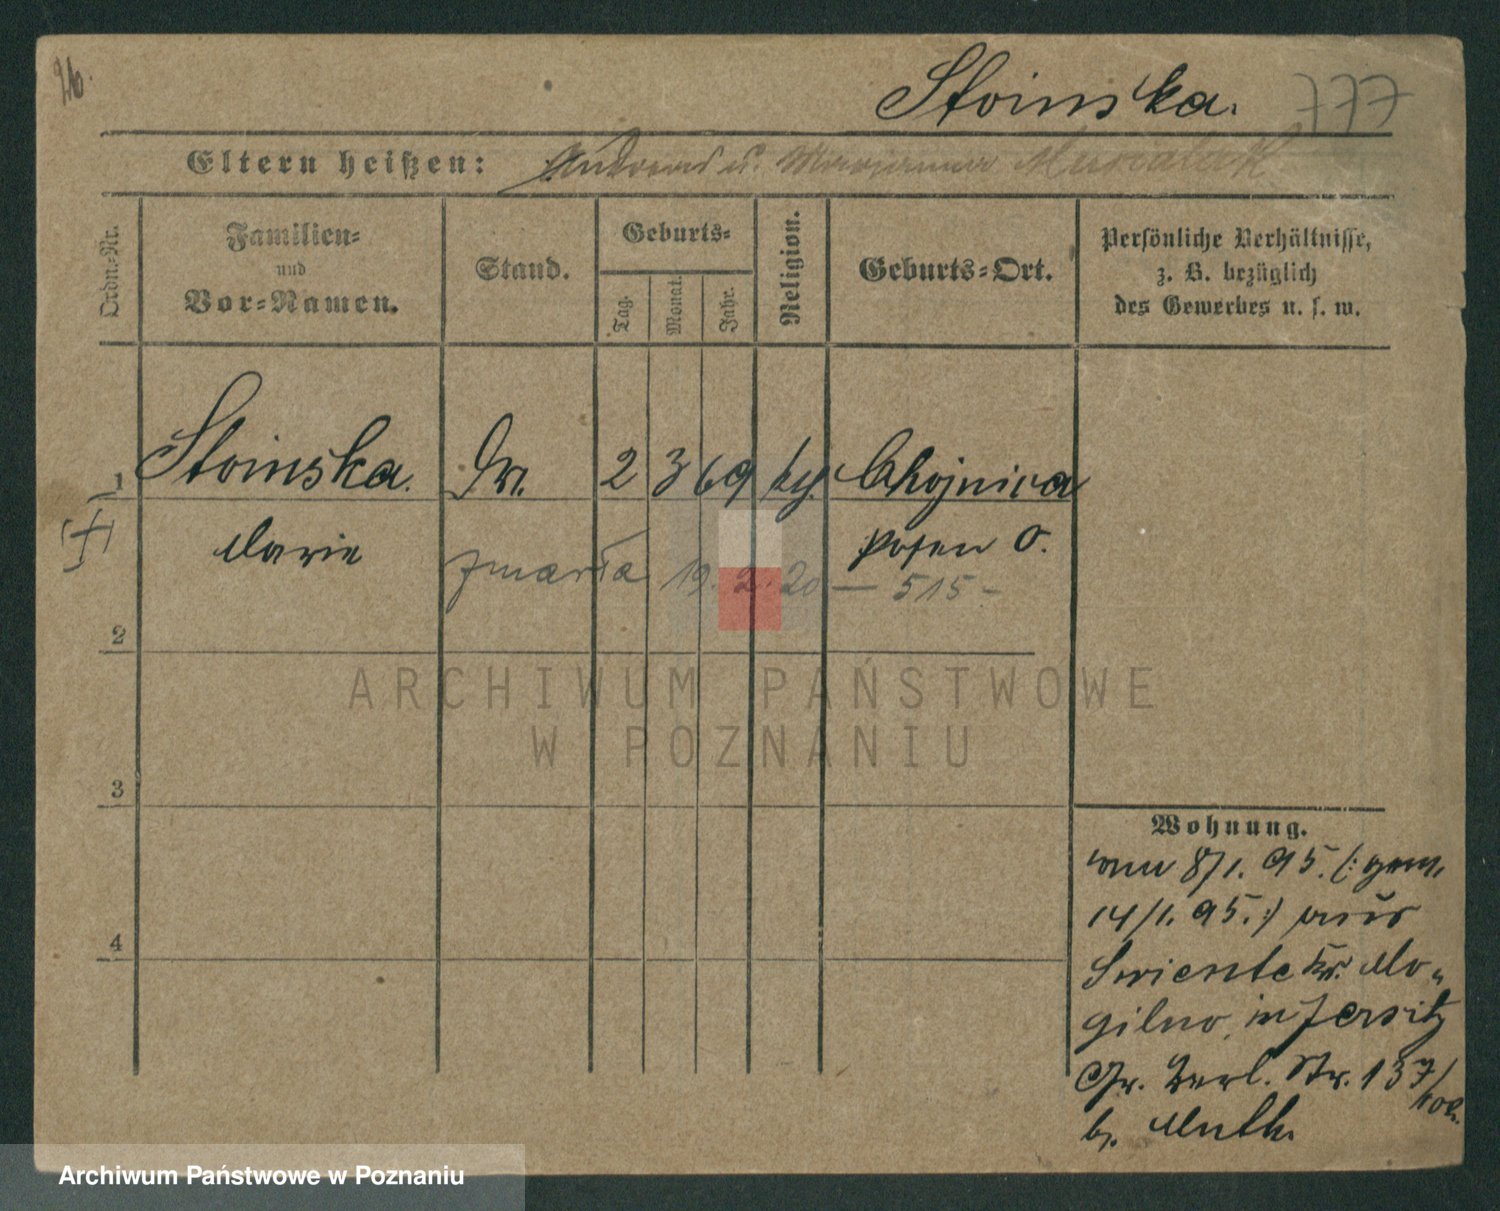 26.
Stoinska.
777
Eltern heißen: Andreas u. Marjanna
Ordn.-Nr.
Familien-
und
Vor-Namen.
Stand.
Geburts-
Tag.
Monat.
Jahr.
Religion.
Geburts-Ort.
Persönliche Verhältnisse,
z. B. bezüglich
des Gewerbes u. s. w.
1 Stoinska. 2 3 69 Chojnica
Marie Posen O.
zmarła 19.2.20 — 515-
2
3
4
Wohnung.
8/1. 95. (: gem.
14/1. 95. :) aus
Swiente Kr. Mo-
gilno, in Jersitz
Gr. Berl. Str. 137/
b. Muth.
ARCHIWUM PAŃSTWOWE
W POZNANIU
Archiwum Państwowe w Poznaniu